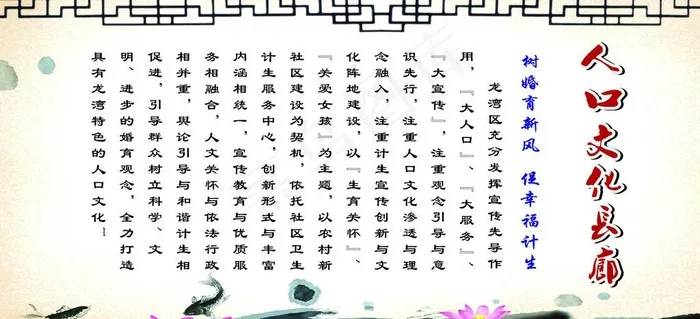 人口文化长廊
树婚育新风 促幸福计生
龙湾区充分发挥宣传先导作
用，『大人口』、『大服务』、
『大宣传』，注重观念引导与意
识先行，注重人口文化渗透与理
念融入，注重计生宣传创新与文
化阵地建设，以『生育关怀』、
『关爱女孩』为主题，以农村新
社区建设为契机，依托社区卫生
计生服务中心，创新形式与丰富
内涵相统一，宣传教育与优质服
务相融合，人文关怀与依法行政
相并重，舆论引导与和谐计生相
促进，引导群众树立科学、文
明、进步的婚育观念，全力打造
具有龙湾特色的人口文化！